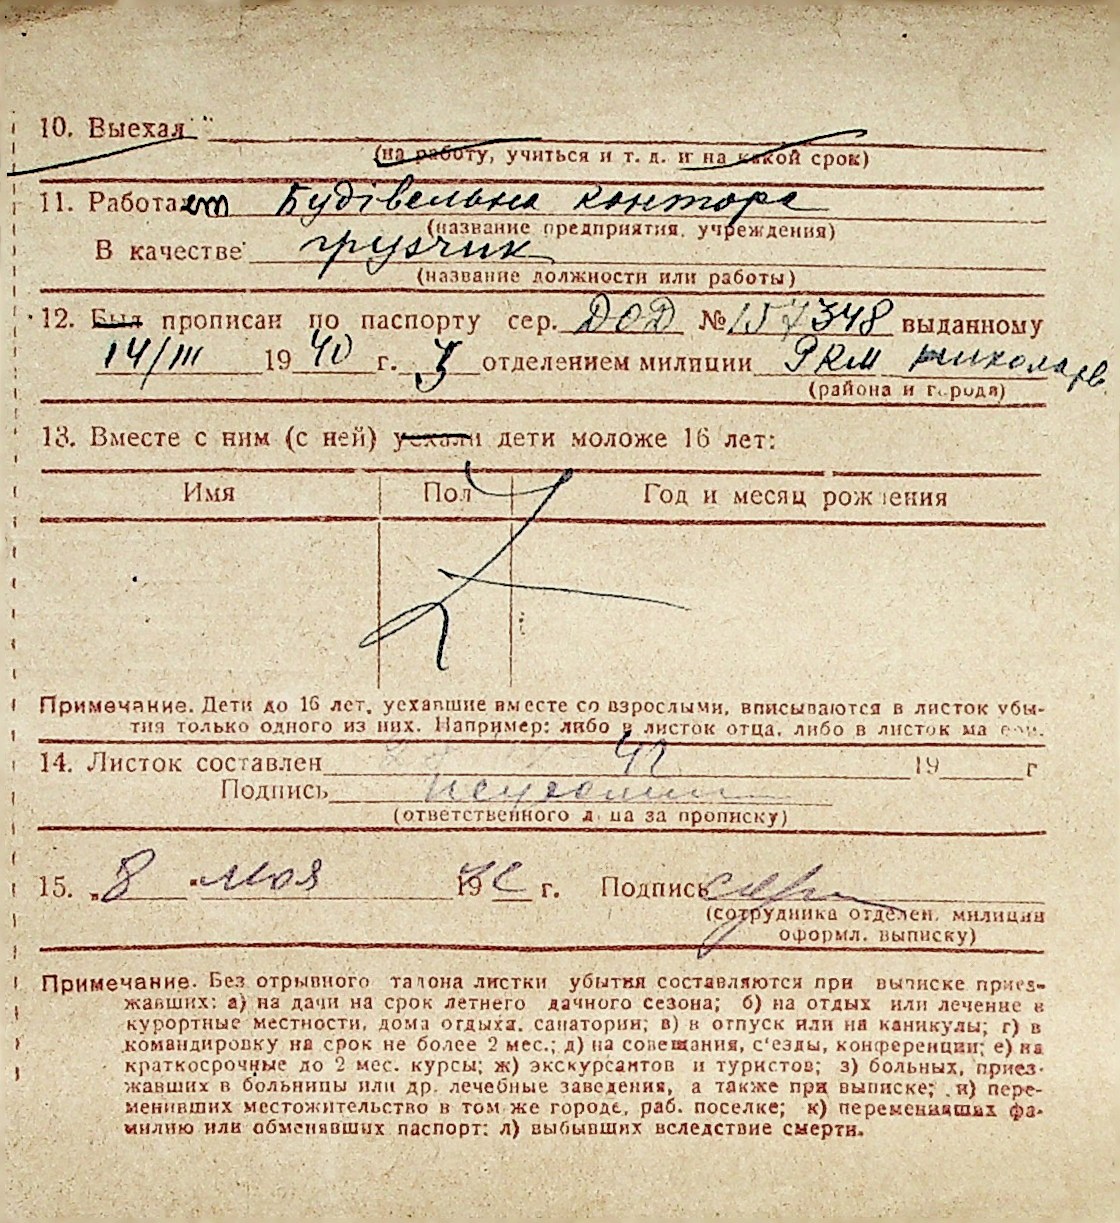 10. Выехал
(на работу, учиться и т. д. и на какой срок)
11. Работает Будівельна контора
(название предприятия, учреждения)
В качестве грузчик
(название должности или работы)
12. Был прописан по паспорту сер. ДОД № 157348 выданному
14/III 1940 г. 3 отделением милиции РКМ Николаев
(района и города)
13. Вместе с ним (с ней) уехали дети моложе 16 лет:
Имя Пол Год и месяц рождения
Примечание. Дети до 16 лет, уехавшие вместе со взрослыми, вписываются в листок убы-
тия только одного из них. Например: либо в листок отца, либо в листок матери.
14. Листок составлен 19 г
Подпись
(ответственного лица за прописку)
15. „8 " мая 19 г. Подпись
(сотрудника отделен. милиции
оформл. выписку)
Примечание. Без отрывного талона листки убытия составляются при выписке приез-
жавших: а) на дачи на срок летнего дачного сезона; б) на отдых или лечение в
курортные местности, дома отдыха, санатории; в) в отпуск или на каникулы; г) в
командировку на срок не более 2 мес.; д) на совещания, с'езды, конференции; е) на
краткосрочные до 2 мес. курсы; ж) экскурсантов и туристов; з) больных, приез-
жавших в больницы или др. лечебные заведения, а также при выписке; и) пере-
менивших местожительство в том же городе, раб. поселке; к) переменивших фа-
милию или обменявших паспорт; л) выбывших вследствие смерти.